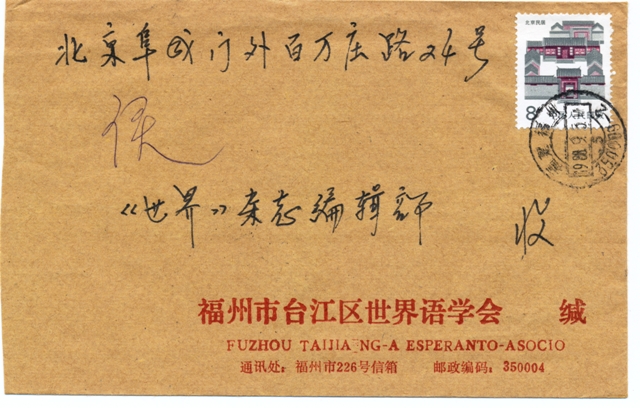 北京民居
8
北京阜成门外百万庄路24号
《世界》杂志编辑部
收
福州市台江区世界语学会 缄
FUZHOU TAIJIA NG-A ESPERANTO-ASOCIO
通讯处：福州市226号信箱 邮政编码：350004